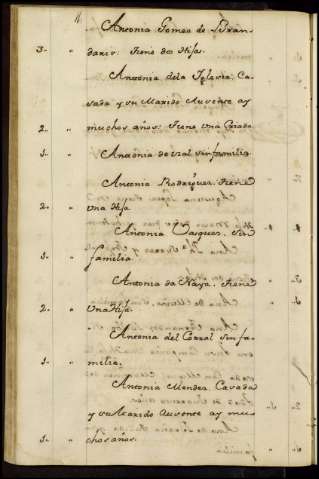 Antonia Gomes de Bran-
3- " dariz. Tiene dos Hijas.
Antonia dela Iglesia Ca-
sada y su Marido Ausente ay
2- " muchos años. Tiene una Criada
1- " Antonia de Vial sin familia
Antonia Rodriguez. Tiene
2- " una Hija
Antonia Vazquez. Sin
1- " familia.
Antonia da Raya. Tiene
2- " una Hija.
Antonia del Corral sin fa-
1- " milia.
Antonia Mendez Casada
y su Marido Ausente ay mu-
1- " chos años.